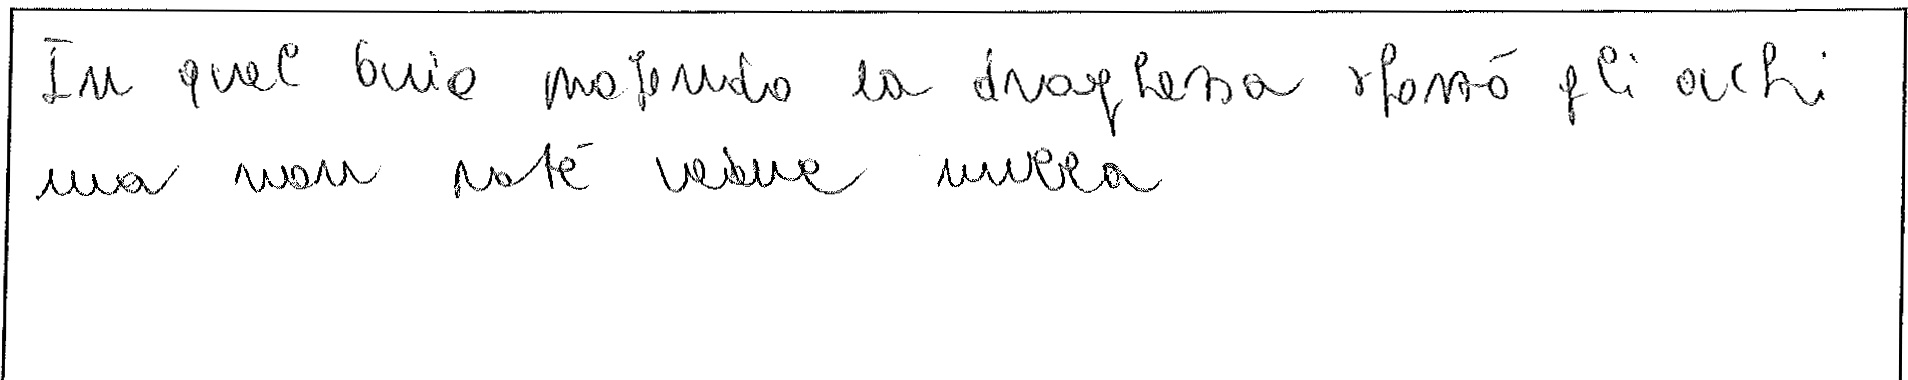 In quel buio profondo la draghessa spostò gli occhi
ma non poté vedere nulla